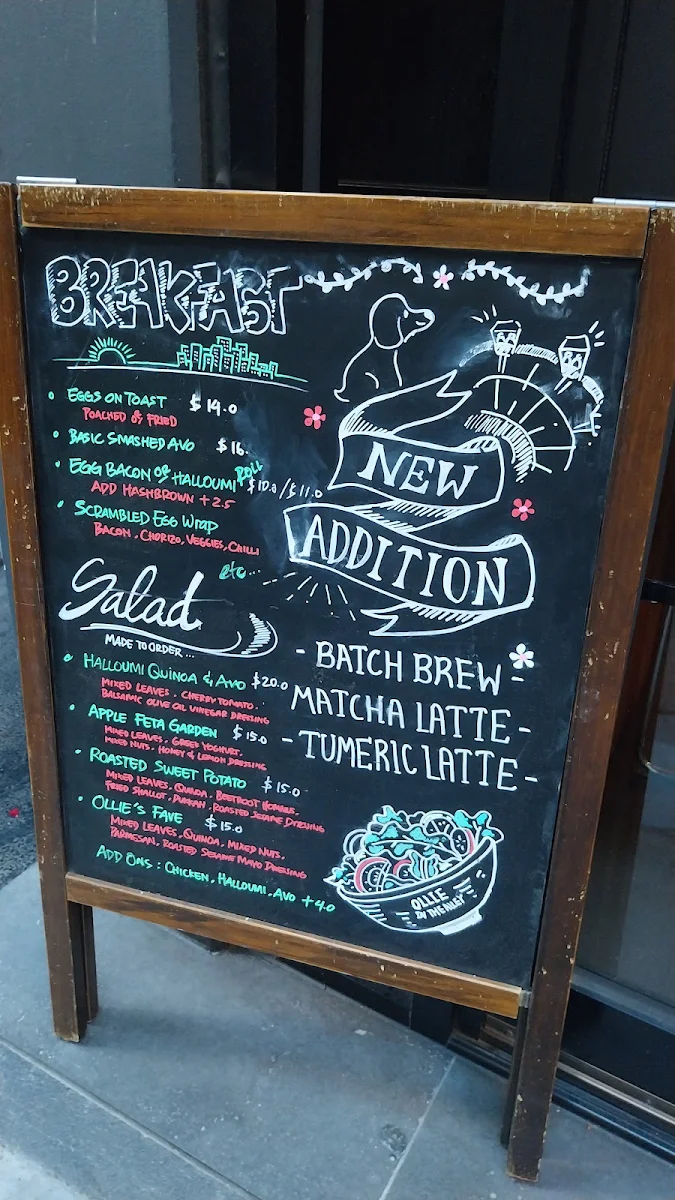 BREAKFAST
EGGS ON TOAST $14.0
POACHED OR FRIED
BASIC SMASHED AVO $16.
EGG BACON OR HALLOUMI ROLL $10.0/$11.0
ADD HASHBROWN +2.5
SCRAMBLED EGG WRAP
BACON, CHORIZO, VEGGIES, CHILLI
etc...
Salad
MADE TO ORDER...
HALLOUMI QUINOA & AVO $20.0
MIXED LEAVES, CHERRY TOMATO.
BALSAMIC OLIVE OIL VINEGAR DRESSING
APPLE FETA GARDEN $15.0
MIXED LEAVES, GREEK YOGHURT.
MIXED NUTS, HONEY & LEMON DRESSING
ROASTED SWEET POTATO $15.0
MIXED LEAVES, QUINOA, BEETROOT HOMMUS,
FRIED SHALLOT, DUKKAH, ROASTED SESAME DRESSING
OLLIE'S FAVE $15.0
MIXED LEAVES, QUINOA, MIXED NUTS,
PARMESAN, ROASTED SESAME MAYO DRESSING
ADD ONS: CHICKEN, HALLOUMI, AVO +4.0
NEW
ADDITION
- BATCH BREW -
MATCHA LATTE -
- TUMERIC LATTE -
OLLIE
IN THE ALLEY